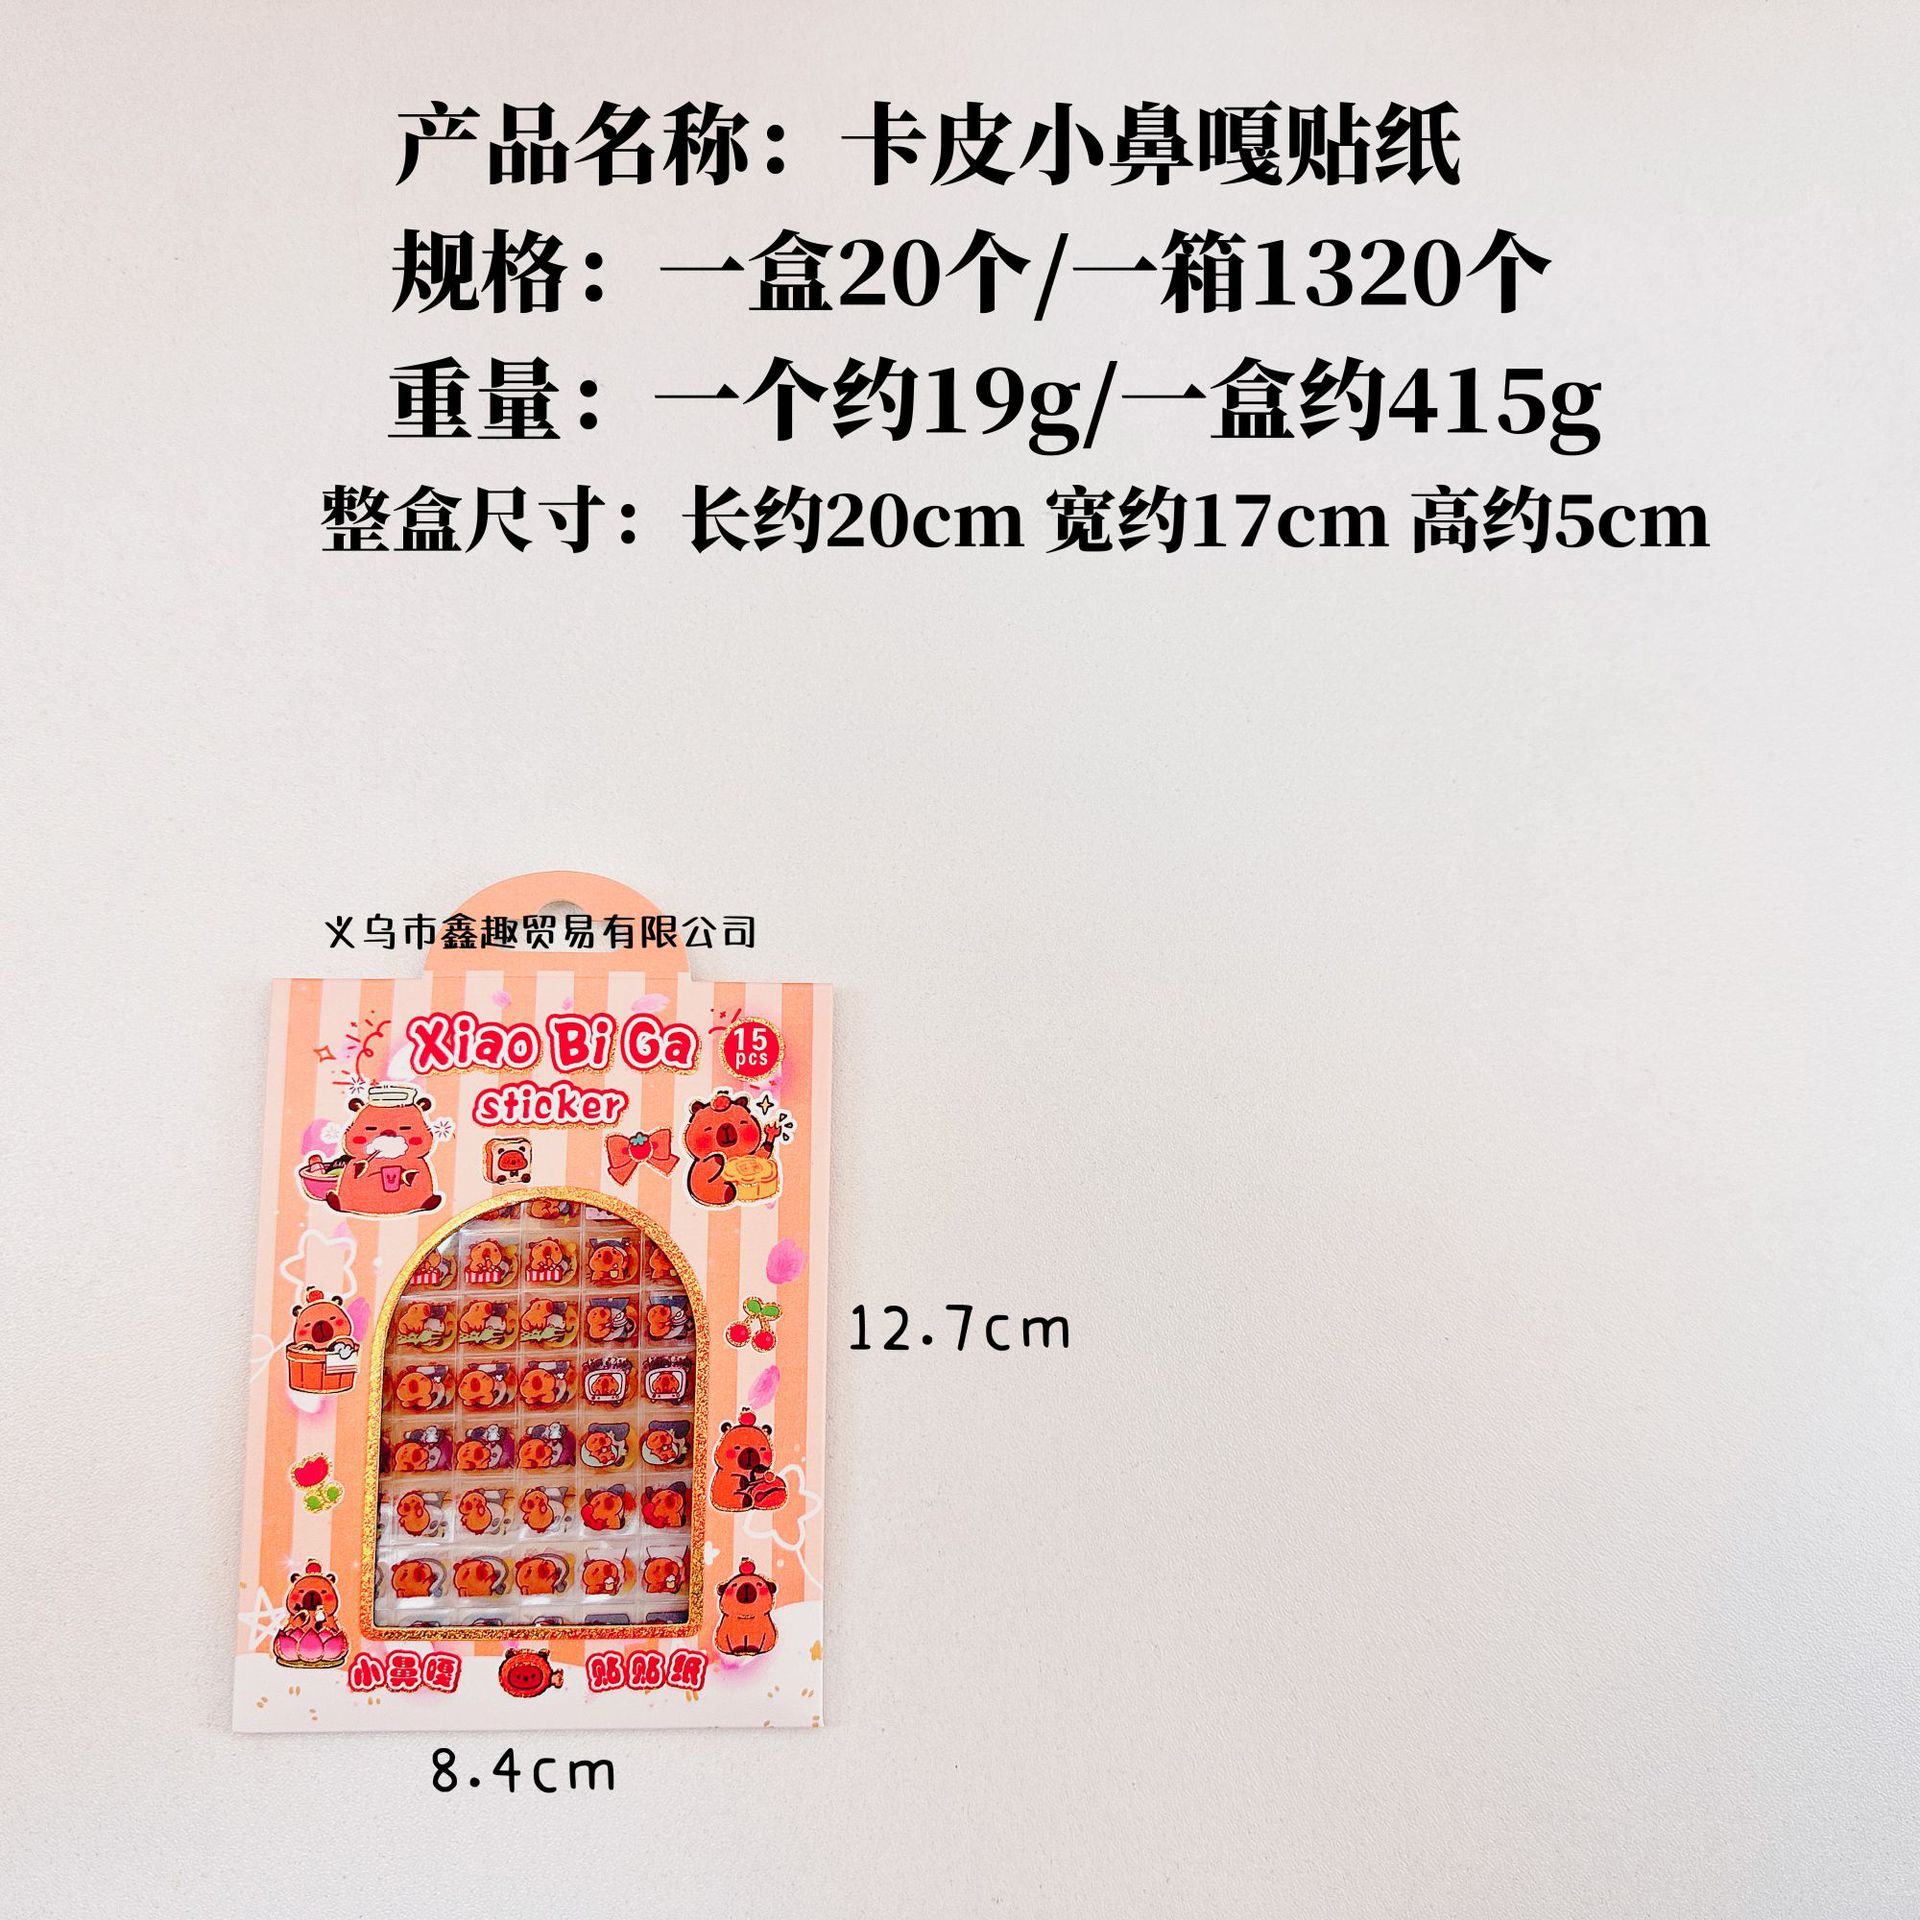 产品名称：卡皮小鼻嘎贴纸
规格：一盒20个/一箱1320个
重量：一个约19g/一盒约415g
整盒尺寸：长约20cm 宽约17cm 高约5cm
义乌市鑫趣贸易有限公司
Xiao Bi Ga
15
pcs
sticker
12.7cm
小鼻嘎 贴贴纸
8.4cm